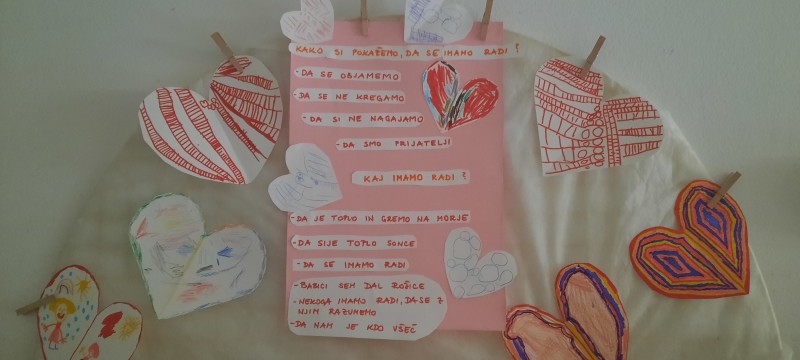 KAKO SI POKAŽEMO, DA SE IMAMO RADI?
- DA SE OBJAMEMO
- DA SE NE KREGAMO
- DA SI NE NAGAJAMO
- DA SMO PRIJATELJI
KAJ IMAMO RADI?
- DA JE TOPLO IN GREMO NA MORJE
- DA SIJE TOPLO SONCE
- DA SE IMAMO RADI
- BABICI SEM DAL ROŽICE
- NEKOGA IMAMO RADI, DA SE Z
NJIM RAZUMEMO
- DA NAM JE KDO VŠEČ